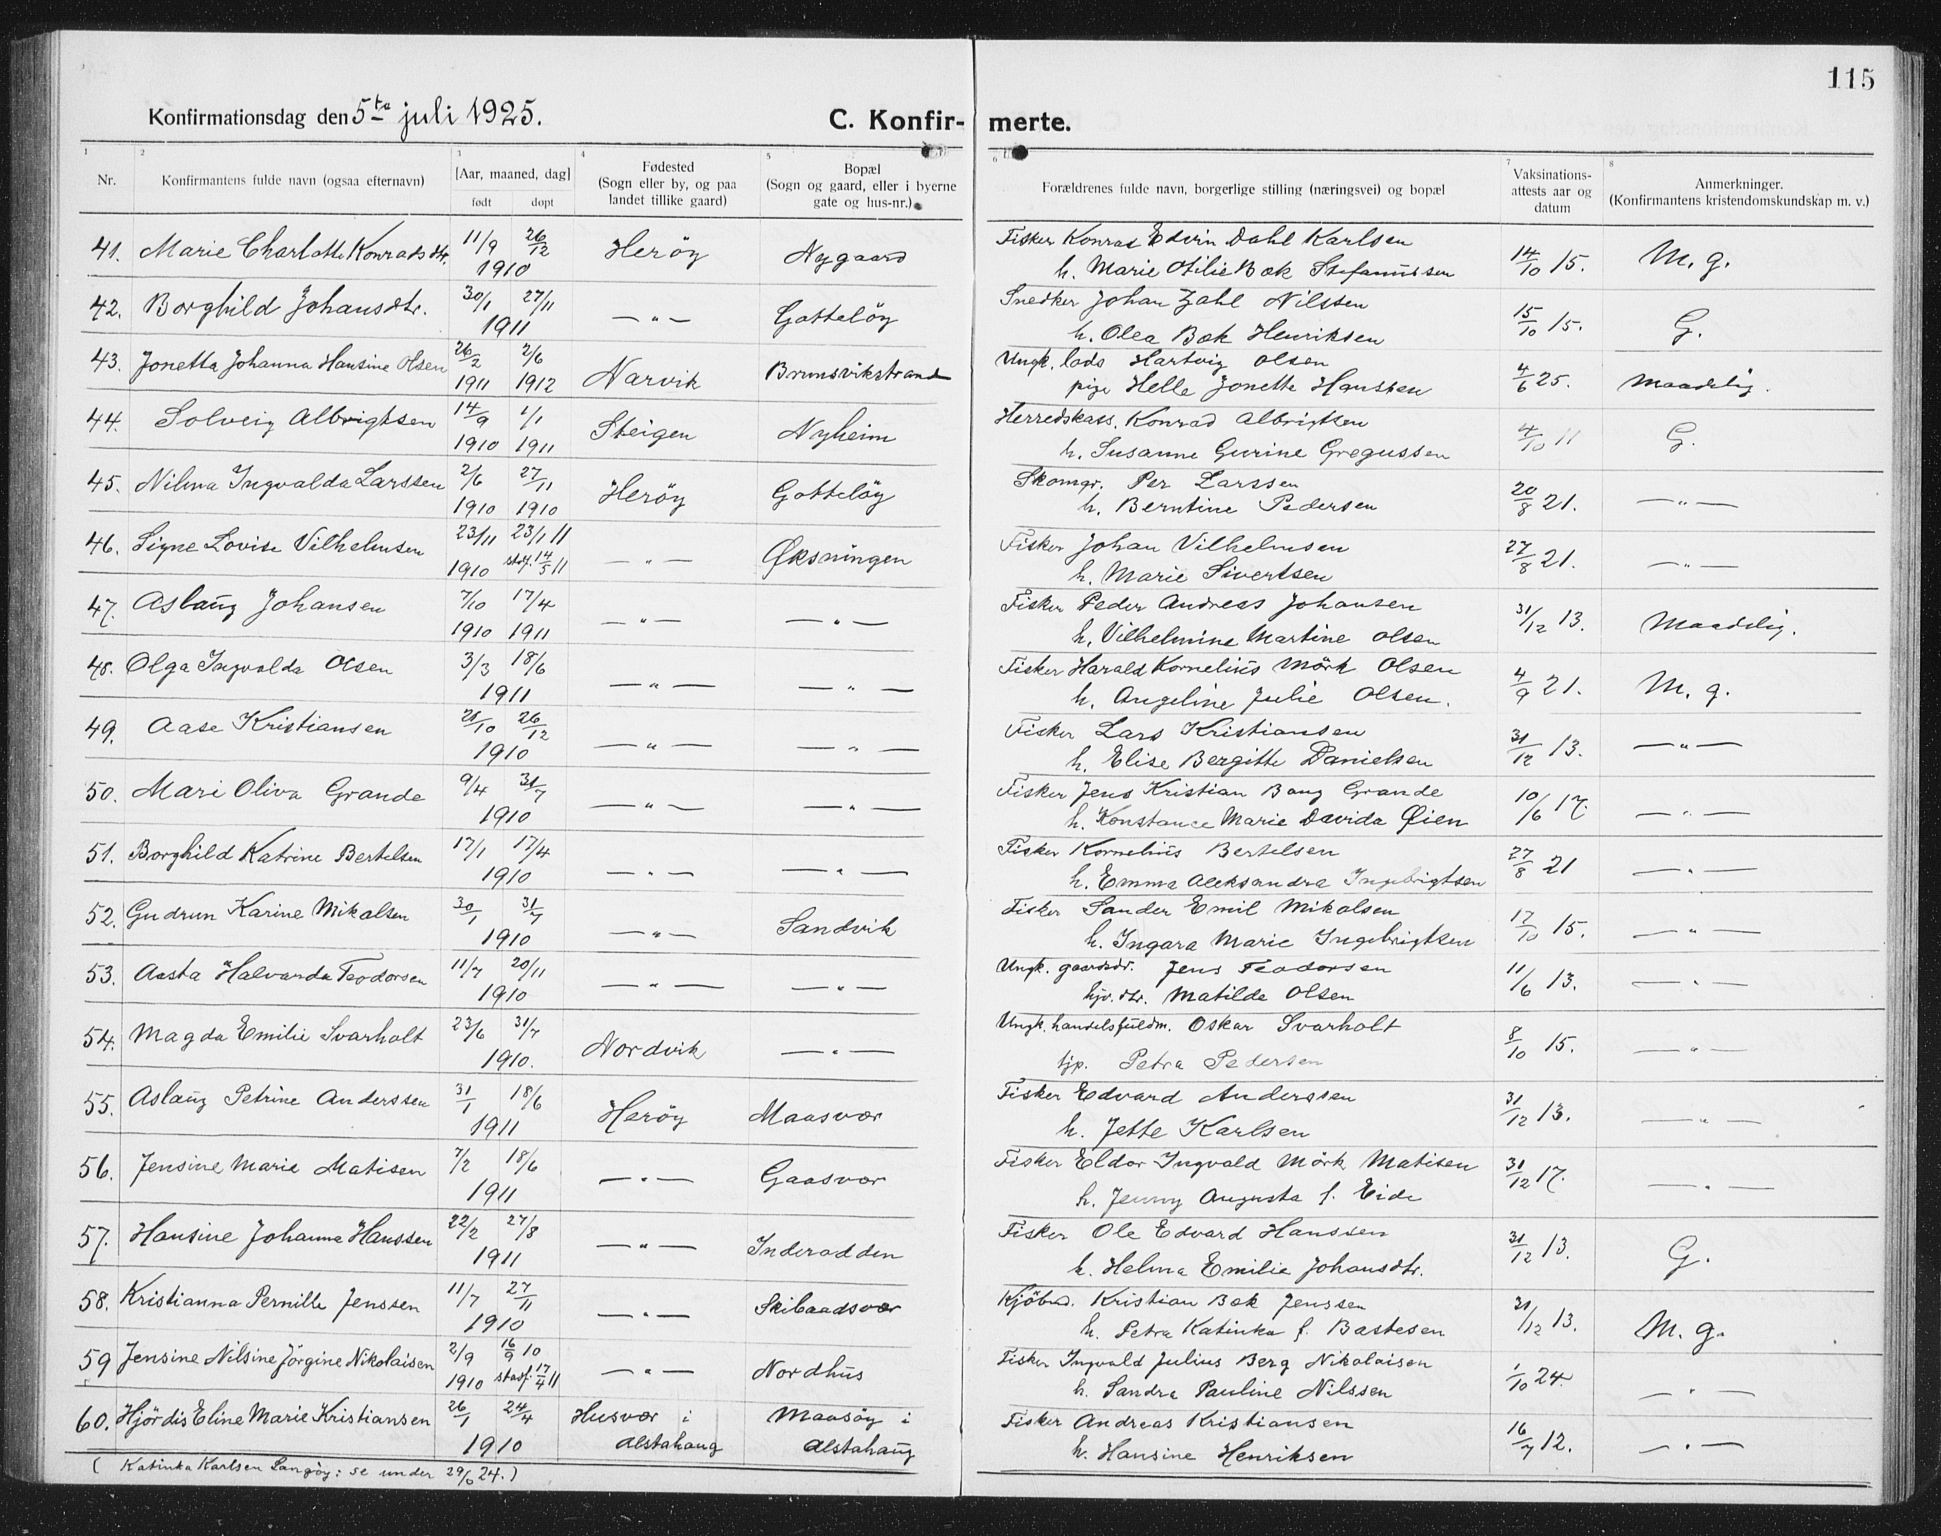 115
Konfirmationsdag den 5te juli 1925. C. Konfir- merte.
1 2 3 4 5 6 7 8
Nr. Konfirmantens fulde navn (ogsaa efternavn) [Aar, maaned, dag] født døpt Fødested (Sogn eller by, og paa landet tillike gaard) Bopæl (Sogn og gaard, eller i byerne gate og hus-nr.) Forældrenes fulde navn, borgerlige stilling (næringsvei) og bopæl Vaksinations-attests aar og datum Anmerkninger. (Konfirmantens kristendomskundskap m. v.)
41. Marie Charlotte Konradsdtr. 11/9 26/12 1910 Heröy Nygaard Fisker Konrad Edvin Dahl Karlsen 14/10 15. M. g.
h. Marie Otilie Bek Stefanussen
42. Borghild Johansdtr. 30/1 27/11 1911 —"— Gotteløy Snedker Johan Zahl Nilssen 15/10 15. G.
h. Olea Bek Henriksen
43. Jonetta Johanna Hansine Olsen 26/2 1911 2/6 1912 Narvik Brunsvikstrand Ungk. lods Hartvig Olsen 4/6 25. Maadelig.
pige Helle Jonette Hanssen
44. Solveig Albrigtsen 14/9 1910 1/1 1911 Steigen Nyheim Herredskass. Konrad Albrigtsen 4/10 11 G.
h. Susanne Gurine Gregussen
45. Nilma Ingvalda Larssen 2/6 1910 27/11 1910 Herøy Gotteløy Skomgr. Per Larssen 20/8 21. —"—
h. Berntine Pedersen
46. Signe Lovise Vilhelmsen 23/11 1910 23/1 11 stadf. 14/5 11 —"— Øksningen Fisker Johan Vilhelmsen 27/8 21. —"—
h. Marie Sivertsen
47. Aslaug Johansen 7/10 1910 17/4 1911 —"— —"— Fisker Peder Andreas Johansen 31/12 13. Maadelig.
h. Vilhelmine Martine Olsen
48. Olga Ingvalda Olsen 3/3 18/6 1911 —"— —"— Fisker Harald Kornelius Mörk Olsen 4/9 21. M. g.
h. Angeline Julie Olsen.
49. Aase Kristiansen 21/10 26/12 1910 —"— —"— Fisker Lars Kristiansen 31/12 13. —"—
h. Elise Bergitte Danielsen
50. Mari Oliva Grande 9/4 31/7 1910 —"— —"— Fisker Jens Kristian Bang Grande 10/6 17. —"—
h. Konstance Marie Davida Øien
51. Borghild Katrine Bertelsen 17/1 17/4 1910 —"— —"— Fisker Kornelius Bertelsen 27/8 21 —"—
h. Emma Aleksandra Ingebrigtsen
52. Gudrun Karine Mikalsen 30/1 31/7 1910 —"— Sandvik Fisker Sander Emil Mikalsen 17/10 15. —"—
h. Ingara Marie Ingebrigtsen
53. Aasta Halvarda Teodorsen 11/7 20/11 1910 —"— —"— Ungk. gaardsdr. Jens Teodorsen 11/6 13. —"—
hjv. dtr. Matilde Olsen
54. Magda Emilie Svarholt 23/6 31/7 1910. Nordvik —"— Ungk. handelsfuldm. Oskar Svarholt 8/10 15. —"—
tjp. Petra Pedersen
55. Aslaug Petrine Anderssen 31/1 18/6 1911 Herøy Maasvær Fisker Edvard Anderssen 31/12 13. —"—
h. Jette Karlsen
56. Jensine Marie Matisen 7/2 18/6 1911 —"— Gaasvær Fisker Eldor Ingvald Mörk Matisen 31/12 17. —"—
h. Jenny Augusta f. Eide
57. Hansine Johanna Hanssen 22/2 27/8 1911 —"— Inderodden Fisker Ole Edvard Hanssen 31/12 13. G.
h. Helma Emilie Johansdtr.
58. Kristianna Pernille Jenssen 11/7 27/11 1910 —"— Skibaadsvær Kjöbmd. Kristian Bek Jenssen 31/12 13. M. g.
h. Petra Katinka f. Bastesen
59 Jensine Nilsine Jörgine Nikolaisen 2/9 1910 16/9 10 stadf. 17/4 11 —"— Nordhus Fisker Ingvald Julius Berg Nikolaisen 1/10 24. —"—
h. Sandra Pauline Nilssen
60. Hjördis Eline Marie Kristiansen 26/1 24/4 1910 Husvær i Alstahaug Maasöy i Alstahaug Fisker Andreas Kristiansen 16/7 12. —"—
h. Hansine Henriksen
( Katinka Karlsen Langöy: se under 29/6 24.)